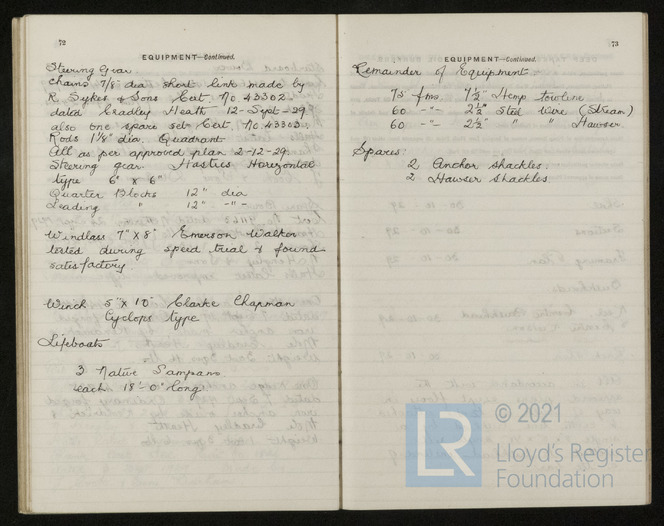 72
EQUIPMENT—Continued.
Steering Gear
Chains 7/8" dia short link made by
R. Sykes & Sons Cert. No. 43302.
dated Cradley Heath 12-Sept-29
also one spare set Cert. No. 43303.
Rods 1 1/8" dia. Quadrant
All as per approved plan 2-12-29.
Steering gear. Hasties Horizontal
type 6" x 6"
Quarter Blocks 12" dia
Leading " 12" -"-
Windlass 7" x 8" Emerson Walker
tested during speed trial & found
satisfactory.
Winch 5" x 10" Clarke Chapman
Cyclops type
Lifeboats
3 Native Sampans
each 18'-0" long
73
EQUIPMENT—Continued.
Remainder of Equipment
75 fms. 7 1/2" Hemp towline
60 -"- 2 1/2" Steel Wire (Stream)
60 -"- 2 1/2" " " Hawser
Spares
2 Anchor shackles.
2 Hawser shackles
LR
© 2021
Lloyd's Register
Foundation